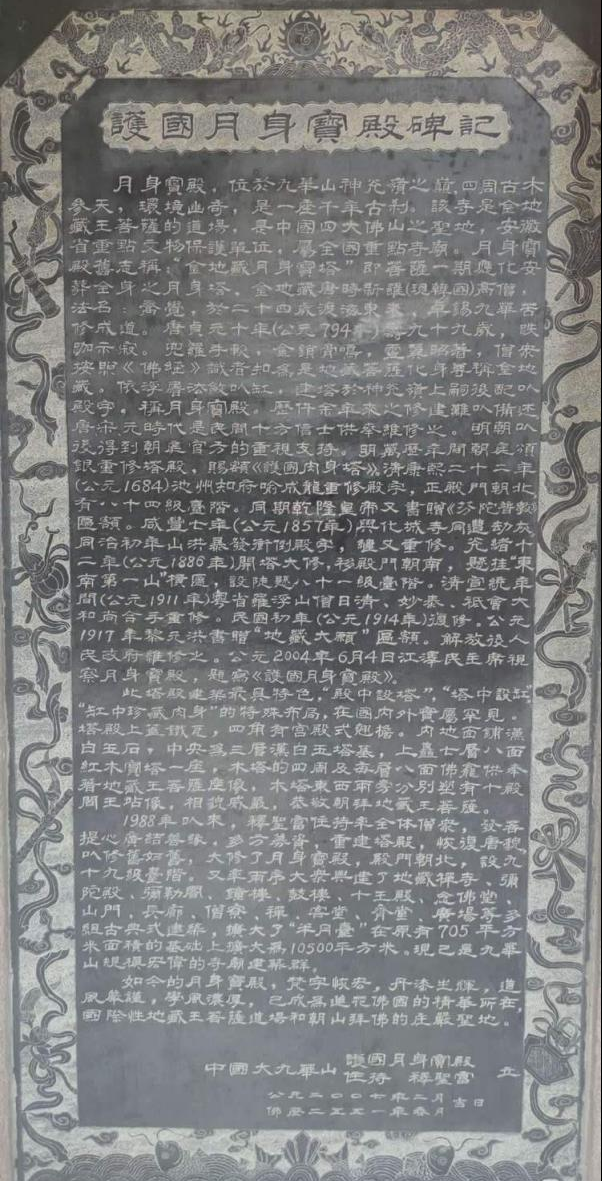 護國月身寶殿碑記
月身寶殿，位於九華山神光嶺之巔，四周古木
參天，環境幽奇，是一座千年古刹。該寺是金地
藏王菩薩的道場，是中國四大佛山之聖地，安徽
省重點文物保護單位，屬全國重點寺廟。月身寶
殿舊志稱：“金地藏月身寶塔”即菩薩一期應化安
葬全身之月身塔，金地藏唐時新羅(現韓國)高僧，
法名：喬覺，於二十四歲渡海東來，卓錫九華苦
修成道。唐貞元十年(公元794年)壽九十九歲，趺
跏示寂。兜羅手軟，金鎖骨鳴，靈異昭著，僧衆
按照《佛經》識者知爲是地藏菩薩化身尊稱金地
藏。依浮屠法斂以缸，建塔於神光嶺上嗣後配以
殿宇。稱月身寶殿。歷仟余年來之修建難以備述
唐宋元時代是民間十方信士供奉維修之。明朝以
後得到朝廷官方的重視支持。明萬歷年間朝廷頒
銀重修塔殿，賜額《護國肉身塔》。清康熙二十二年
(公元1684)池州知府喻成龍重修殿宇，正殿門朝北
有八十四級臺階。同期乾隆皇帝又書贈《芬陀普教》
匾額。咸豐七年(公元1857年)與化城寺同遭劫灰
同治初年山洪暴發衝倒殿宇，雖又重修。光緒十
二年(公元1886年)開塔大修，移殿門朝南，懸挂“東
南第一山”横匾，設陡懸八十一級臺階。清宣統年
間(公元1911年)粤省羅浮山僧日清、妙泰、祇會大
和尚合手重修。民國初年(公元1914年)復修。公元
1917年黎元洪書贈“地藏大願”匾額。解放後人
民政府維修之。公元2004年6月4日江澤民主席視
察月身寶殿，題寫《護國月身寶殿》。
此塔殿建築最具特色，“殿中設塔”，“塔中設缸”，
“缸中珍藏肉身”的特殊布局，在國内外實屬罕見。
塔殿上蓋鐵瓦，四角有宮殿式翹檐。内地面鋪漢
白玉石，中央爲三層漢白玉塔基，上矗七層八面
紅木寶塔一座，木塔的四周及每層八面佛龕供奉
着地藏王菩薩座像，木塔東西兩旁分别塑有十殿
閻王站像，相貌威嚴，恭敬朝拜地藏王菩薩。
1988年以來，釋聖富住持率全體僧衆，發菩
提心廣結善緣，多方募資，重建塔殿，恢復唐貌
以修舊如舊，大修了月身寶殿，殿門朝北，設九
十九級臺階。又率兩序大衆興建了地藏禪寺、彌
陀殿、彌勒閣、鐘樓、鼓樓、十王殿、念佛堂、
山門、長廊、僧寮、禪、客堂、齊堂、廣場等多
組古典式建築，擴大了“半月臺”在原有705平方
米面積的基础上擴大爲10500平方米。現已是九華
山規模宏偉的寺廟建築群。
如今的月身寶殿，梵宇恢宏，丹漆生輝，道
風嚴謹，學風濃厚，已成爲蓮花佛國的精華所在，
國際性地藏王菩薩道場和朝山拜佛的庄嚴聖地。
中國大九華山 護國月身寶殿
住持 釋聖富 立
公元二00七年二月吉日
佛歷二五五一年春月